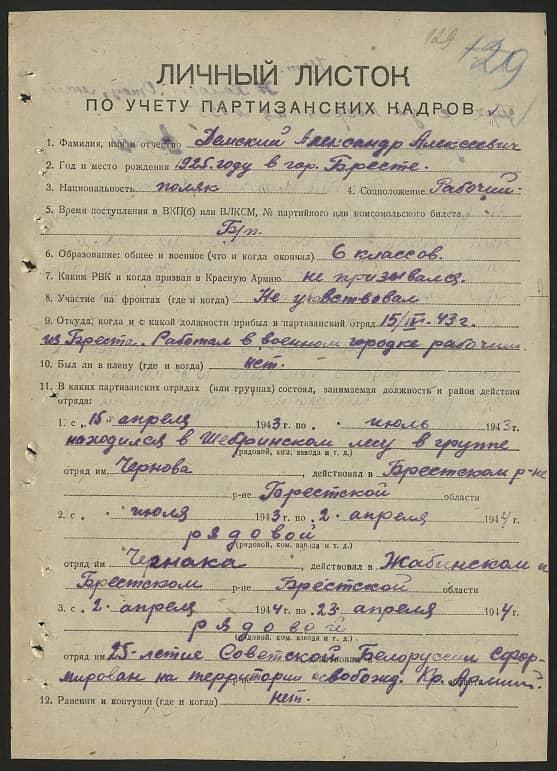 129
129
ЛИЧНЫЙ ЛИСТОК
ПО УЧЕТУ ПАРТИЗАНСКИХ КАДРОВ
1. Фамилия, имя и отчество Демский Александр Алексеевич
2. Год и место рождения 1925 году в гор. Бресте.
3. Национальность поляк 4. Соцположение Рабочий.
5. Время поступления в ВКП(б) или ВЛКСМ, № партийного или комсомольского билета
Б/п.
6. Образование: общее и военное (что и когда окончил) 6 классов.
7. Каким РВК и когда призван в Красную Армию не призывался.
8. Участие на фронтах (где и когда) Не участвовал
9. Откуда, когда и с какой должности прибыл в партизанский отряд 15/IV-43 г.
из Бреста. Работал в военном городке рабочим.
10. Был ли в плену (где и когда) нет.
11. В каких партизанских отрядах (или группах) состоял, занимаемая должность и район действия
отряда:
1. с „15" апреля 1943 г. по . . июль 1943 г.
находился в лесу в группе
(рядовой, ком. взвода и т. д.)
отряд им. Чернова, действовал в Брестском р-не
р-не Брестской области
2. с . . июля 1943 г. по . 2 . апреля 1944 г.
рядовой
(рядовой, ком. взвода и т. д.)
отряд им Чернака, действовал в Жабинском и
Брестском р-не Брестской области
3. с . 2 . апреля 1944 г. по . 23 . апреля 1944 г.
рядовой
(рядовой, ком. взвода и т. д.)
отряд им 25-летие Советской Белоруссии Сфор-
мирован на территории освобожд. Кр. Армией.
12. Ранения и контузии (где и когда) нет.